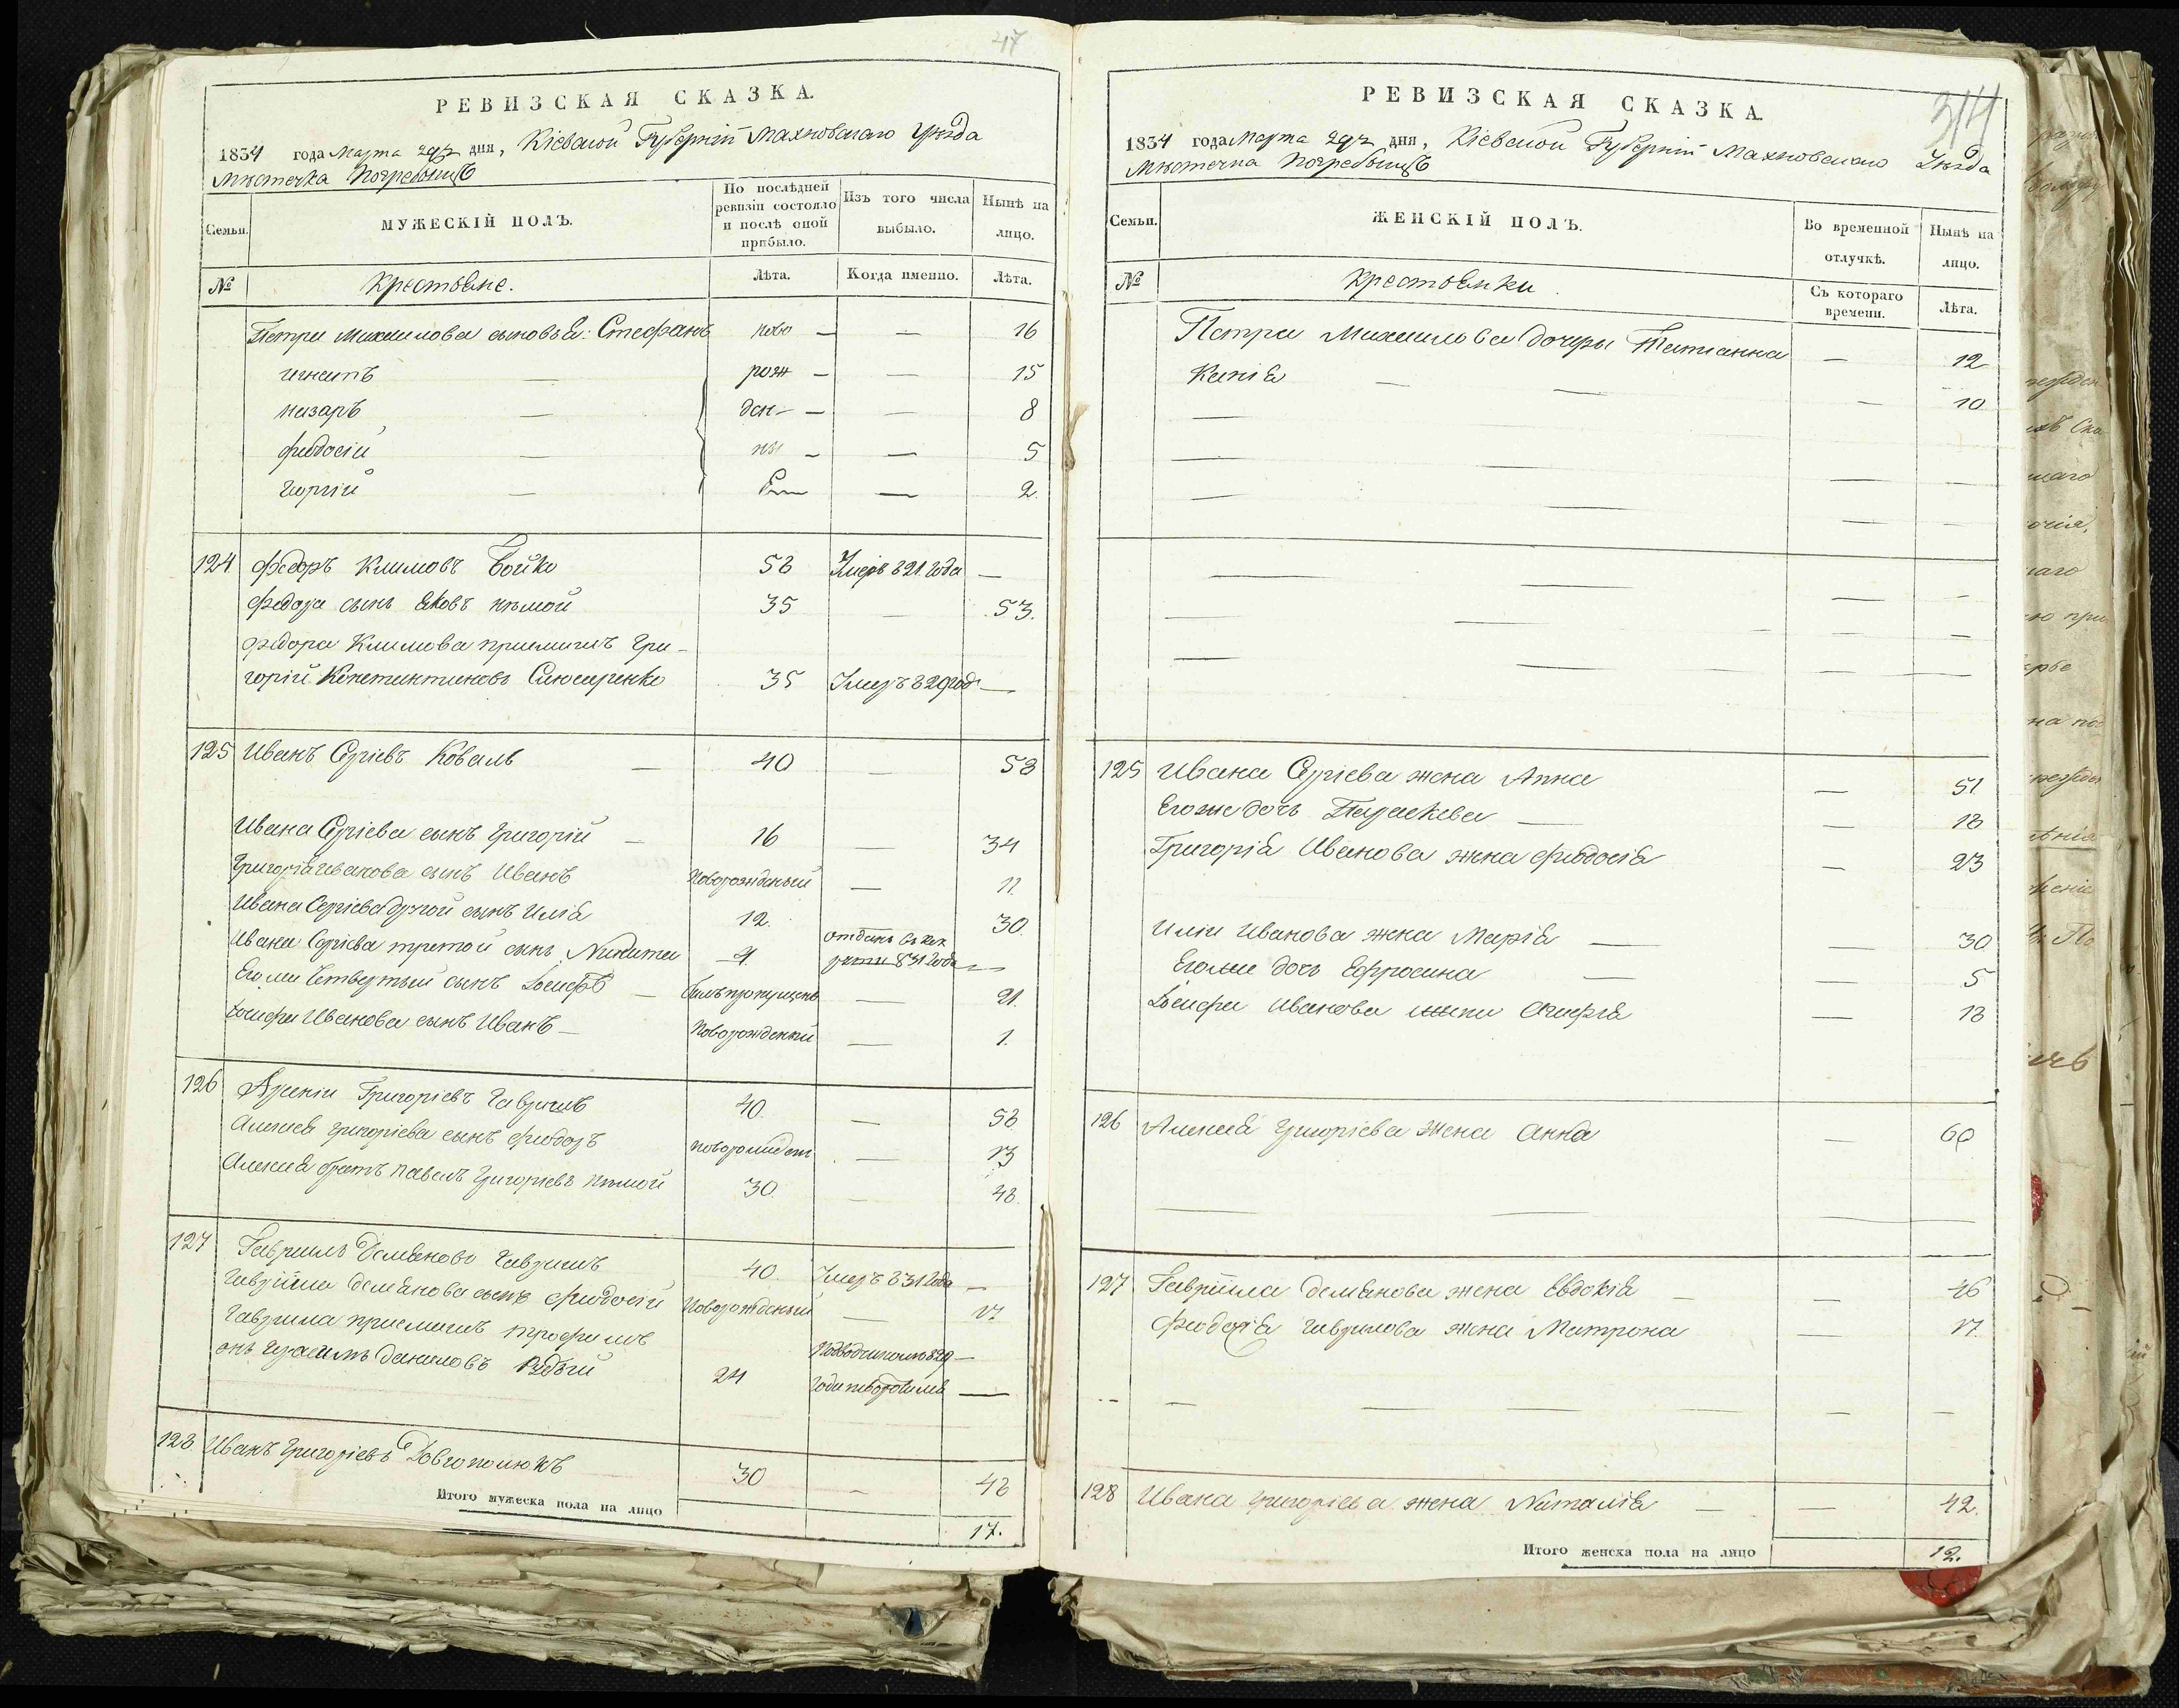 47
РЕВИЗСКАЯ СКАЗКА.
1834 года Марта 29го дня, Кіевской Губерніи Махновскаго Уѣзда
Мѣстечка Погребищъ
Семьи.
МУЖЕСКІЙ ПОЛЪ.
По послѣдней ревизіи состояло и послѣ оной прибыло.
Изъ того числа выбыло.
Нынѣ на лицо.
№
Крестьяне.
Лѣта.
Когда именно.
Лѣта.
Петра Михаилова сыновья: Стефанъ ново — — 16
Игнатъ — рож — — 15
Назаръ — ден — — 8
Феодосій — ны — — 5
Георгій — — 2.
124 Федоръ Климовъ Бойко 58 Умеръ 821 года —
Федора сынъ Яковъ нѣмой 35 — 53.
Федора Климова приемышъ Гри-
горій Константиновъ 35 Умеръ 829 год —
125 Иванъ Сергіевъ Коваль — 40 — 58
Ивана Сергіева сынъ Григорій — 16 — 34
Григорія Иванова сынъ Иванъ Новорожденый — 11.
Ивана Сергіева другой сынъ Илія 12. 30
Ивана Сергіева третой сынъ Никита 4. отданъ въ рек
руты 831 года —
Его же Четвертый сынъ Іосифъ — былъ пропущенъ — 21.
Іосифа Иванова сынъ Иванъ — Новорожденый — 1.
126 Григоріевъ Гавришъ 40. — 58
Алексея Григоріева сынъ Феодоръ новорожден — 13
Алексея братъ Павелъ Григоріевъ нѣмой 30. — 48.
127 Гавриилъ Демяновъ Гавришъ 40. Умеръ 831 года —
Гавріила Демянова сынъ Феодосій Новорожденый — 17.
Гавриила приемышъ Трофимъ
онъ Герасимъ Даниловъ Рудый 24 829 —
года —
128. Иванъ Григоріевъ Довгополюкъ 30 — 48
Итого мужеска пола на лицо 17.
314
РЕВИЗСКАЯ СКАЗКА.
1834 года Марта 29го дня, Кіевской Губерніи Махновскаго Уѣзда
Мѣстечка Погребищъ
Семьи.
ЖЕНСКІЙ ПОЛЪ.
Во временной отлучкѣ.
Нынѣ на лицо.
№
Крестьянки.
Съ котораго времени.
Лѣта.
Петра Михаилова дочеры Татіанна — 12
Ксенія — — — 10
125 Ивана Сергіева жена Анна — 51
Его же дочь Параскева — — 18
Григорія Иванова жена Феодосія — 23
Иліи Иванова жена Марія — — 30
Его же дочь Ефросина — — 5
Іосифа Иванова жена Агафія — 18
126 Алексея Григоріева жена Анна — 60
127 Гавріила Демянова жена Евдокія — — 46
Феодосія Гаврилова жена Матрона — 17.
128 Ивана Григоріева жена Наталія — — 42.
Итого женска пола на лицо 12.